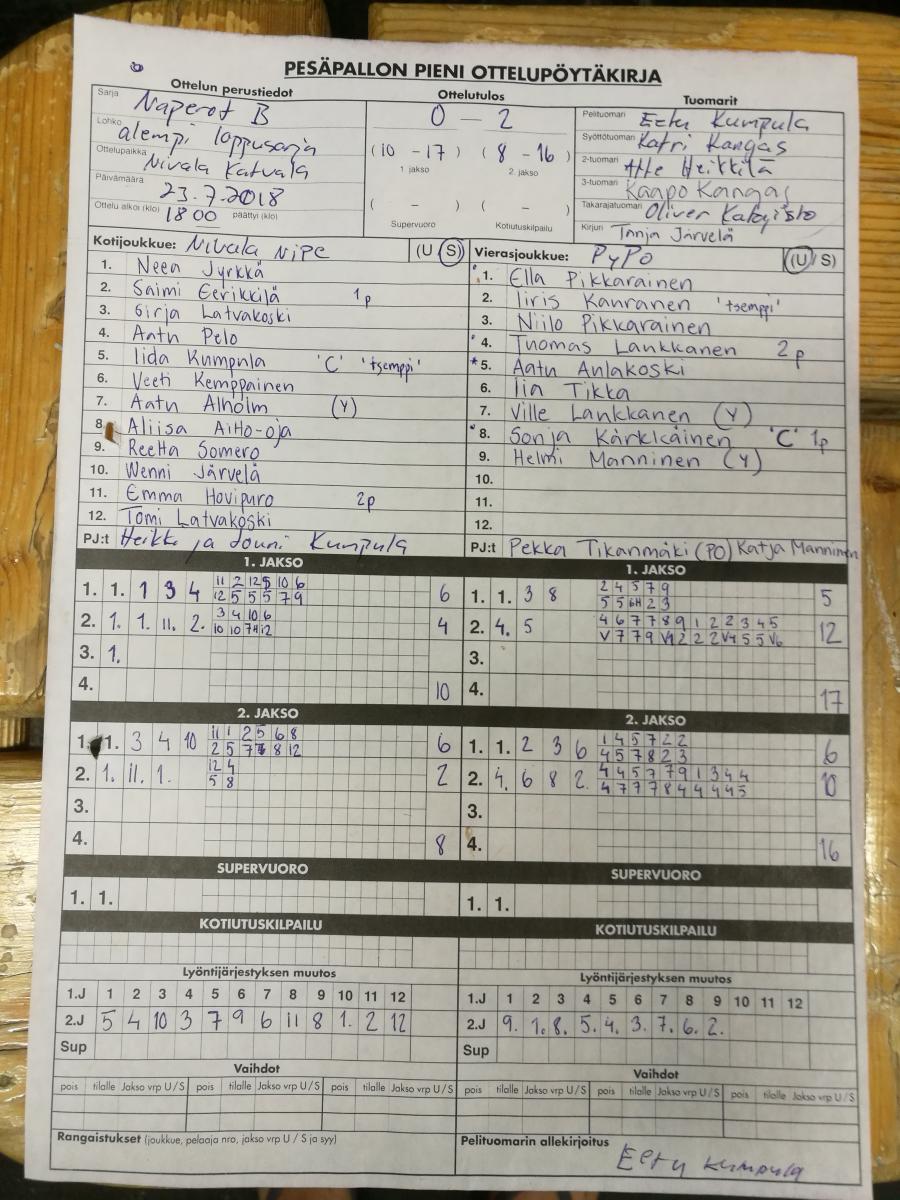 PESÄPALLON PIENI OTTELUPÖYTÄKIRJA
Ottelun perustiedot
Sarja Naperot B
Lohko alempi loppusarja
Ottelupaikka Nivala Katvala
Päivämäärä 23.7.2018
Ottelu alkoi (klo) 18 00 päättyi (klo)
Ottelutulos
0 - 2
(10 - 17) (8 - 16)
1. jakso 2. jakso
( - ) ( - )
Supervuoro Kotiutuskilpailu
Tuomarit
Pelituomari Eetu Kumpula
Syöttötuomari Katri Kangas
2-tuomari Atte Heikkilä
3-tuomari Kaapo Kangas
Takarajatuomari Oliver
Kirjuri Tanja Järvelä
Kotijoukkue: Nivala NiPe (U S)
1. Neea Jyrkkä
2. Saimi Eerikkilä 1p
3. Sirja Latvakoski
4. Aatu Pelo
5. Iida Kumpula 'C' 'tsemppi'
6. Veeti Kemppainen
7. Aatu Alholm (Y)
8. Aliisa Aitto-oja
9. Reetta Somero
10. Wenni Järvelä
11. Emma Hovipuro 2p
12. Tomi Latvakoski
PJ:t Heikki ja Jouni Kumpula
Vierasjoukkue: PyPo (U S)
1. Ella Pikkarainen
2. Iiris Kanranen 'tsemppi'
3. Niilo Pikkarainen
4. Tuomas Lankkanen 2p
*5. Aatu Anlakoski
6. Iia Tikka
7. Ville Lankkanen (Y)
8. Sonja Kärkkäinen 'C' 1p
9. Helmi Manninen (Y)
10.
11.
12.
PJ:t Pekka Tikanmäki (PO) Katja Manninen
1. JAKSO
1. 1. 1 3 4 11 2 12 5 10 6 6
12 5 5 5 7 9
2. 1. 1. 11. 2. 3 4 10 6 4
10 10 7H 12
3. 1.
4. 10
1. JAKSO
1. 1. 3 8 2 4 5 7 9 5
5 5 6H 2 3
2. 4. 5 4 6 7 7 8 9 1 2 2 3 4 5 12
V 7 7 9 V1 2 2 2 V4 5 5 V6
3.
4. 17
2. JAKSO
1. 1. 3 4 10 11 1 2 5 6 8 6
2 5 7 7 8 12
2. 1. 11. 1. 12 4 2
5 8
3.
4. 8
2. JAKSO
1. 1. 2 3 6 1 4 5 7 2 2 6
4 5 7 8 2 3
2. 4. 6 8 2. 4 4 5 7 7 9 1 3 4 4 10
4 7 7 7 8 4 4 4 4 5
3.
4. 16
SUPERVUORO
1. 1.
SUPERVUORO
1. 1.
KOTIUTUSKILPAILU
KOTIUTUSKILPAILU
Lyöntijärjestyksen muutos
1.J 1 2 3 4 5 6 7 8 9 10 11 12
2.J 5 4 10 3 7 9 6 11 8 1. 2 12
Sup
Lyöntijärjestyksen muutos
1.J 1 2 3 4 5 6 7 8 9 10 11 12
2.J 9. 1. 8. 5. 4. 3. 7. 6. 2.
Sup
Vaihdot
pois tilalle Jakso vrp U / S pois tilalle Jakso vrp U / S pois tilalle Jakso vrp U / S
Vaihdot
pois tilalle Jakso vrp U / S pois tilalle Jakso vrp U / S pois tilalle Jakso vrp U / S
Rangaistukset (joukkue, pelaaja nro, jakso vrp U / S ja syy)
Pelituomarin allekirjoitus
Eetu Kumpula